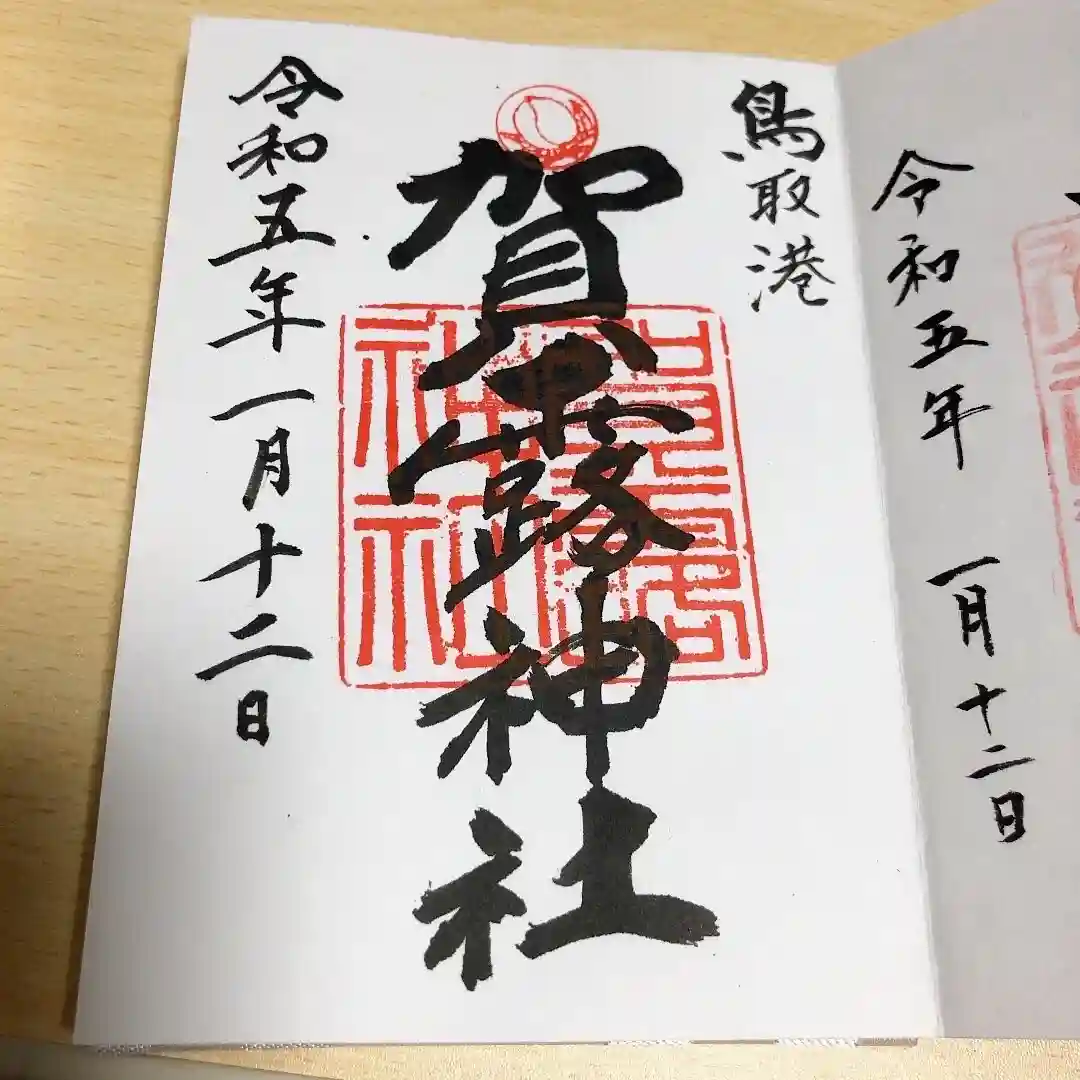 令和五年一月十二日
鳥取港
賀露神社
賀露
神社
令和五年一月十二日